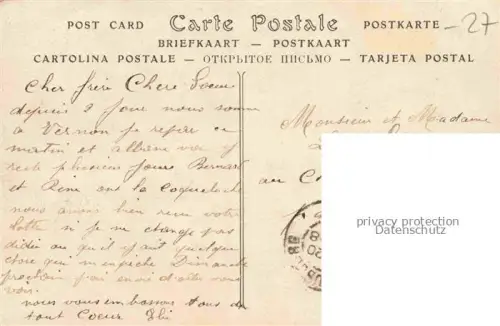 POST CARD Carte Postale POSTKARTE
-27
BRIEFKAART — POSTKAART
CARTOLINA POSTALE — ОТКРЫТОЕ ПИСЬМО — TARJETA POSTAL
Cher frère Chere Soeur
depuis 2 jour nous somme
à Vernon je repare ce
matin et
reste plusieurs jours Bernard
et Rene ont la coqueluche
nous avons bien reçu votre
lettre si je ne change pas
didée ou qu'il y ait quelque
chose qui m'empêche Dimanche
prochain j'ai envie d'aller vous
voir.
nous vous embrassons tous de
tout Coeur
Monsieur et Madame
au
privacy protection
Datenschutz